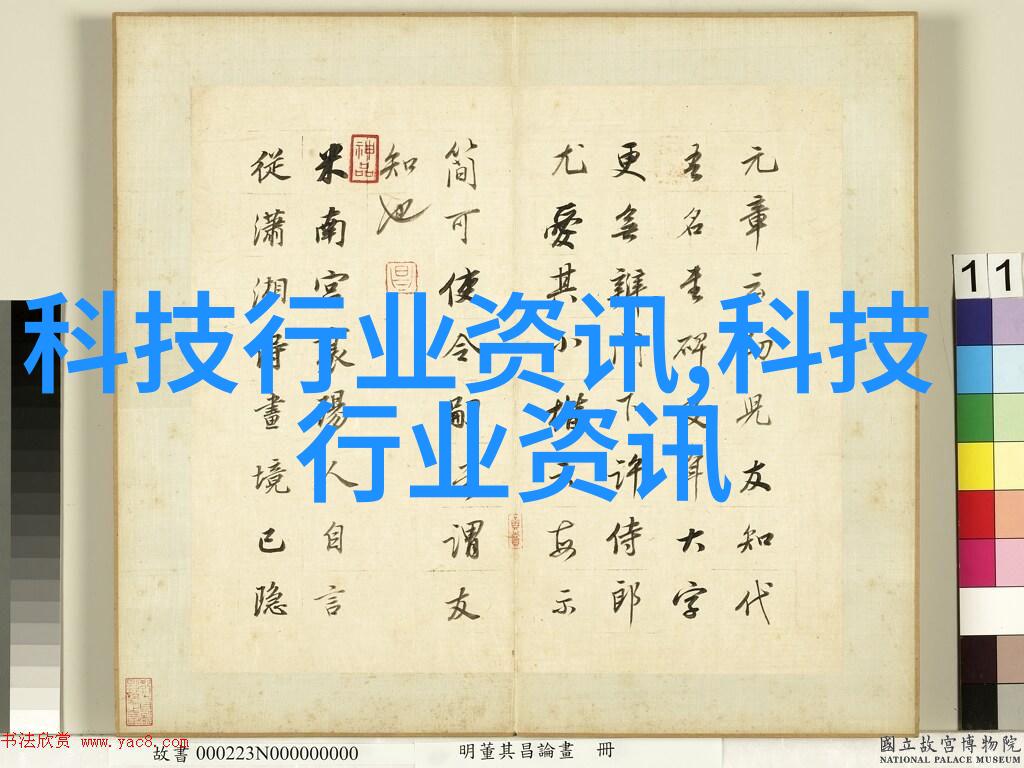 科技行业资讯,科技
行业资讯
元章云幼兒友知代
吾名書碑及手大字
更無辨門下許侍郎
尤愛其小楷云每示
簡可使令嗣 謂友
知也
神品
米南宮襄陽人自言
從瀟湘得畫境已隐
11
书法欣赏 www.yac8.com
故書 000223N000000000
明董其昌論畫 冊
國立故宮博物院
NATIONAL PALACE MUSEUM